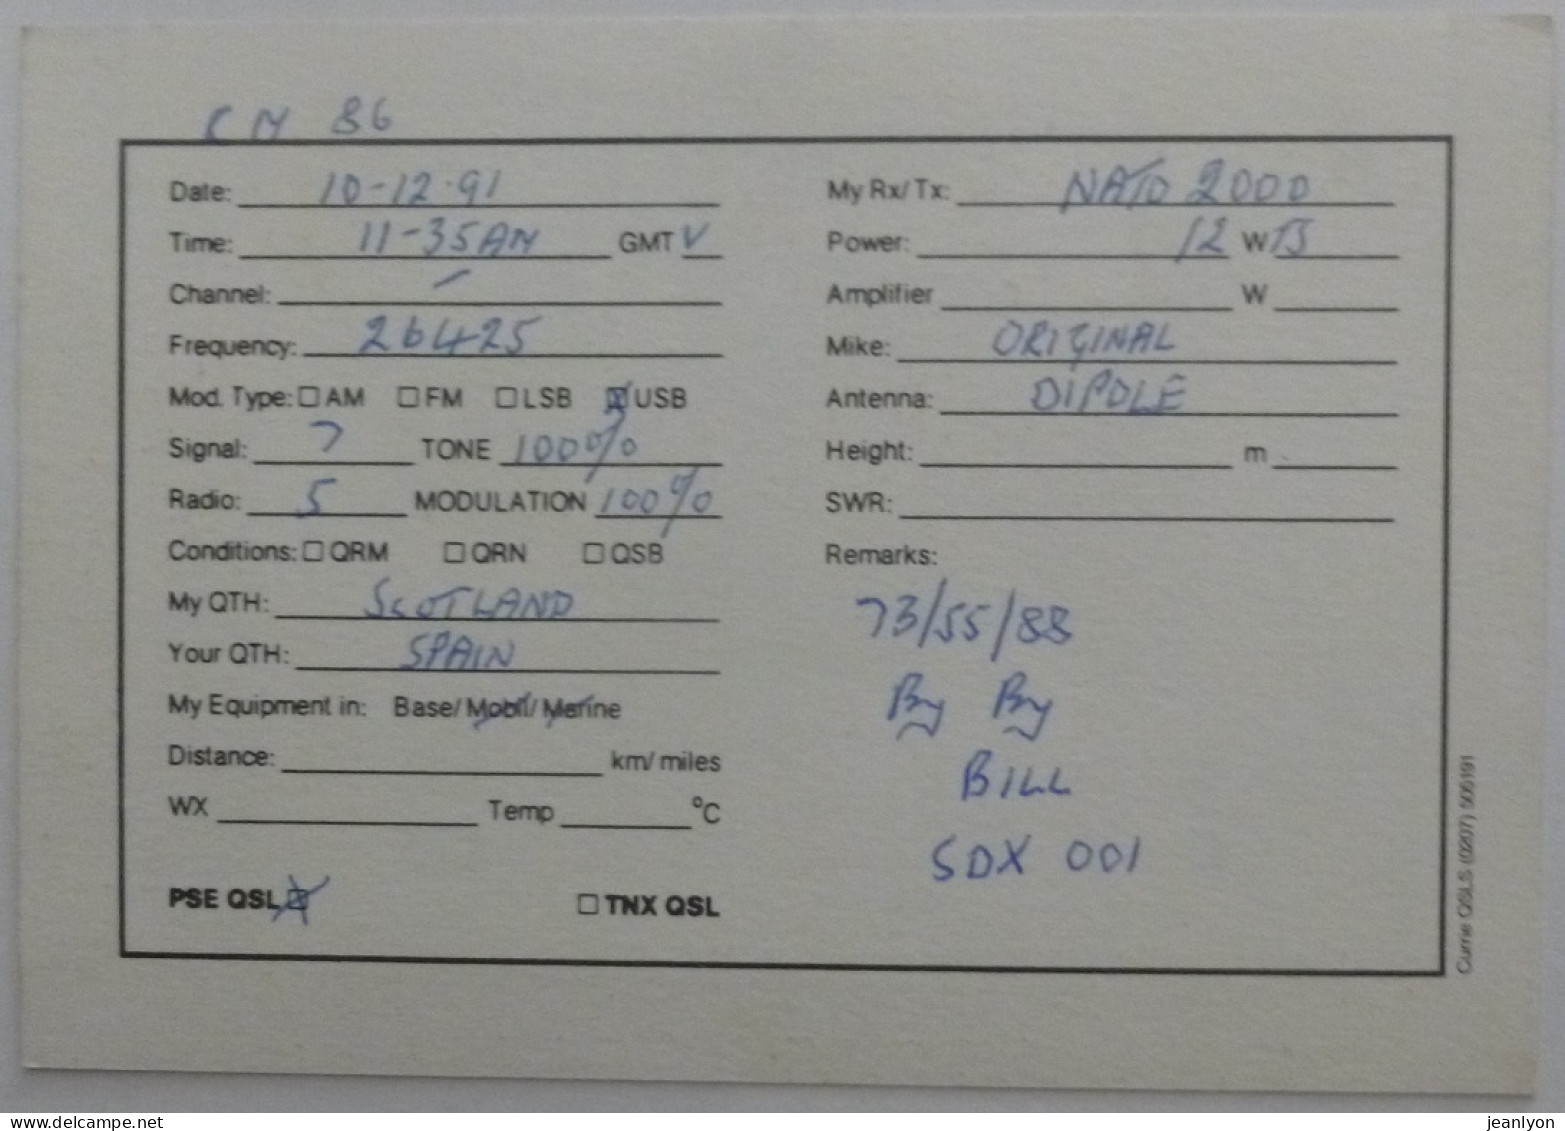 86
Date: 10-12-91
Time: 11-35AM GMT V
Channel: -
Frequency: 26425
Mod. Type: ☐ AM ☐ FM ☐ LSB ☒ USB
Signal: 7 TONE 100%
Radio: 5 MODULATION 100%
Conditions: ☐ QRM ☐ QRN ☐ QSB
My QTH: SCOTLAND
Your QTH: SPAIN
My Equipment in: Base/ Mobil/ Marine
Distance: km/ miles
WX Temp °C
PSE QSL ☒ ☐ TNX QSL
My Rx/ Tx: NATO 2000
Power: 12 WTS
Amplifier W
Mike: ORIGINAL
Antenna: DIPOLE
Height: m
SWR:
Remarks:
73/55/88
By By
BILL
SDX 001
Currie QSLS (0207) 506191
www.delcampe.net
jeanlyon